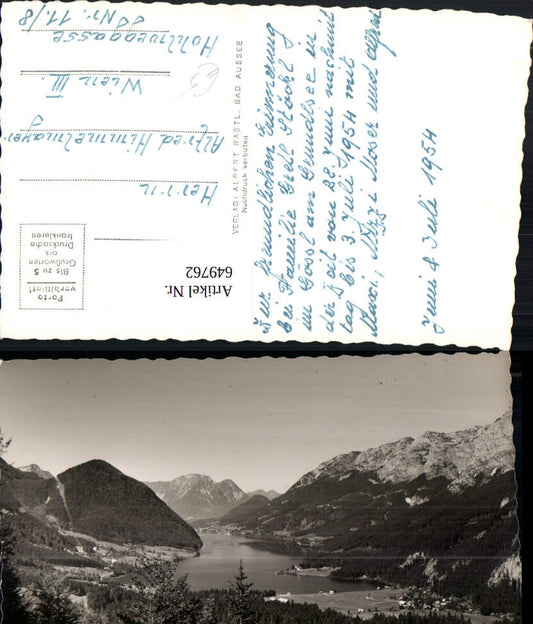 Zur freundlichen Erinnerung
bei Familie Gretl Stöckl
in Gössl am Grundlsee in
der Zeit von 28. Juni nachmit
tag bis 3. Juli 1954 mit
Maxi, Mizzi Moser und Alfred
Juni & Juli 1954
VERLAG: ALBERT RASTL, BAD AUSSEE
Nachdruck verboten
Porto
vorbilliert!
Bis zu 5
Grußworten
als
Drucksache
frankieren
Herrn
Alfred Himmelmayer
Wien III.
Hohlweggasse
Nr. 11/8
Artikel Nr.
649762